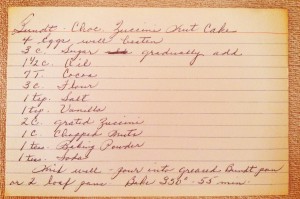 Bundt - Choc. Zuccini Nut Cake
4 Eggs, well beaten
3 c. Sugar gradually add
1 1/2 c. Oil
7 T. Cocoa
3 c. Flour
1 tsp. Salt
1 tsp. Vanilla
2 c. grated Zuccini
1 c. Chopped Nuts
1 tsp. Baking Powder
1 tsp. Soda
Mix well - pour into greased Bundt pan
or 2 loaf pans Bake 350° - 55 min.